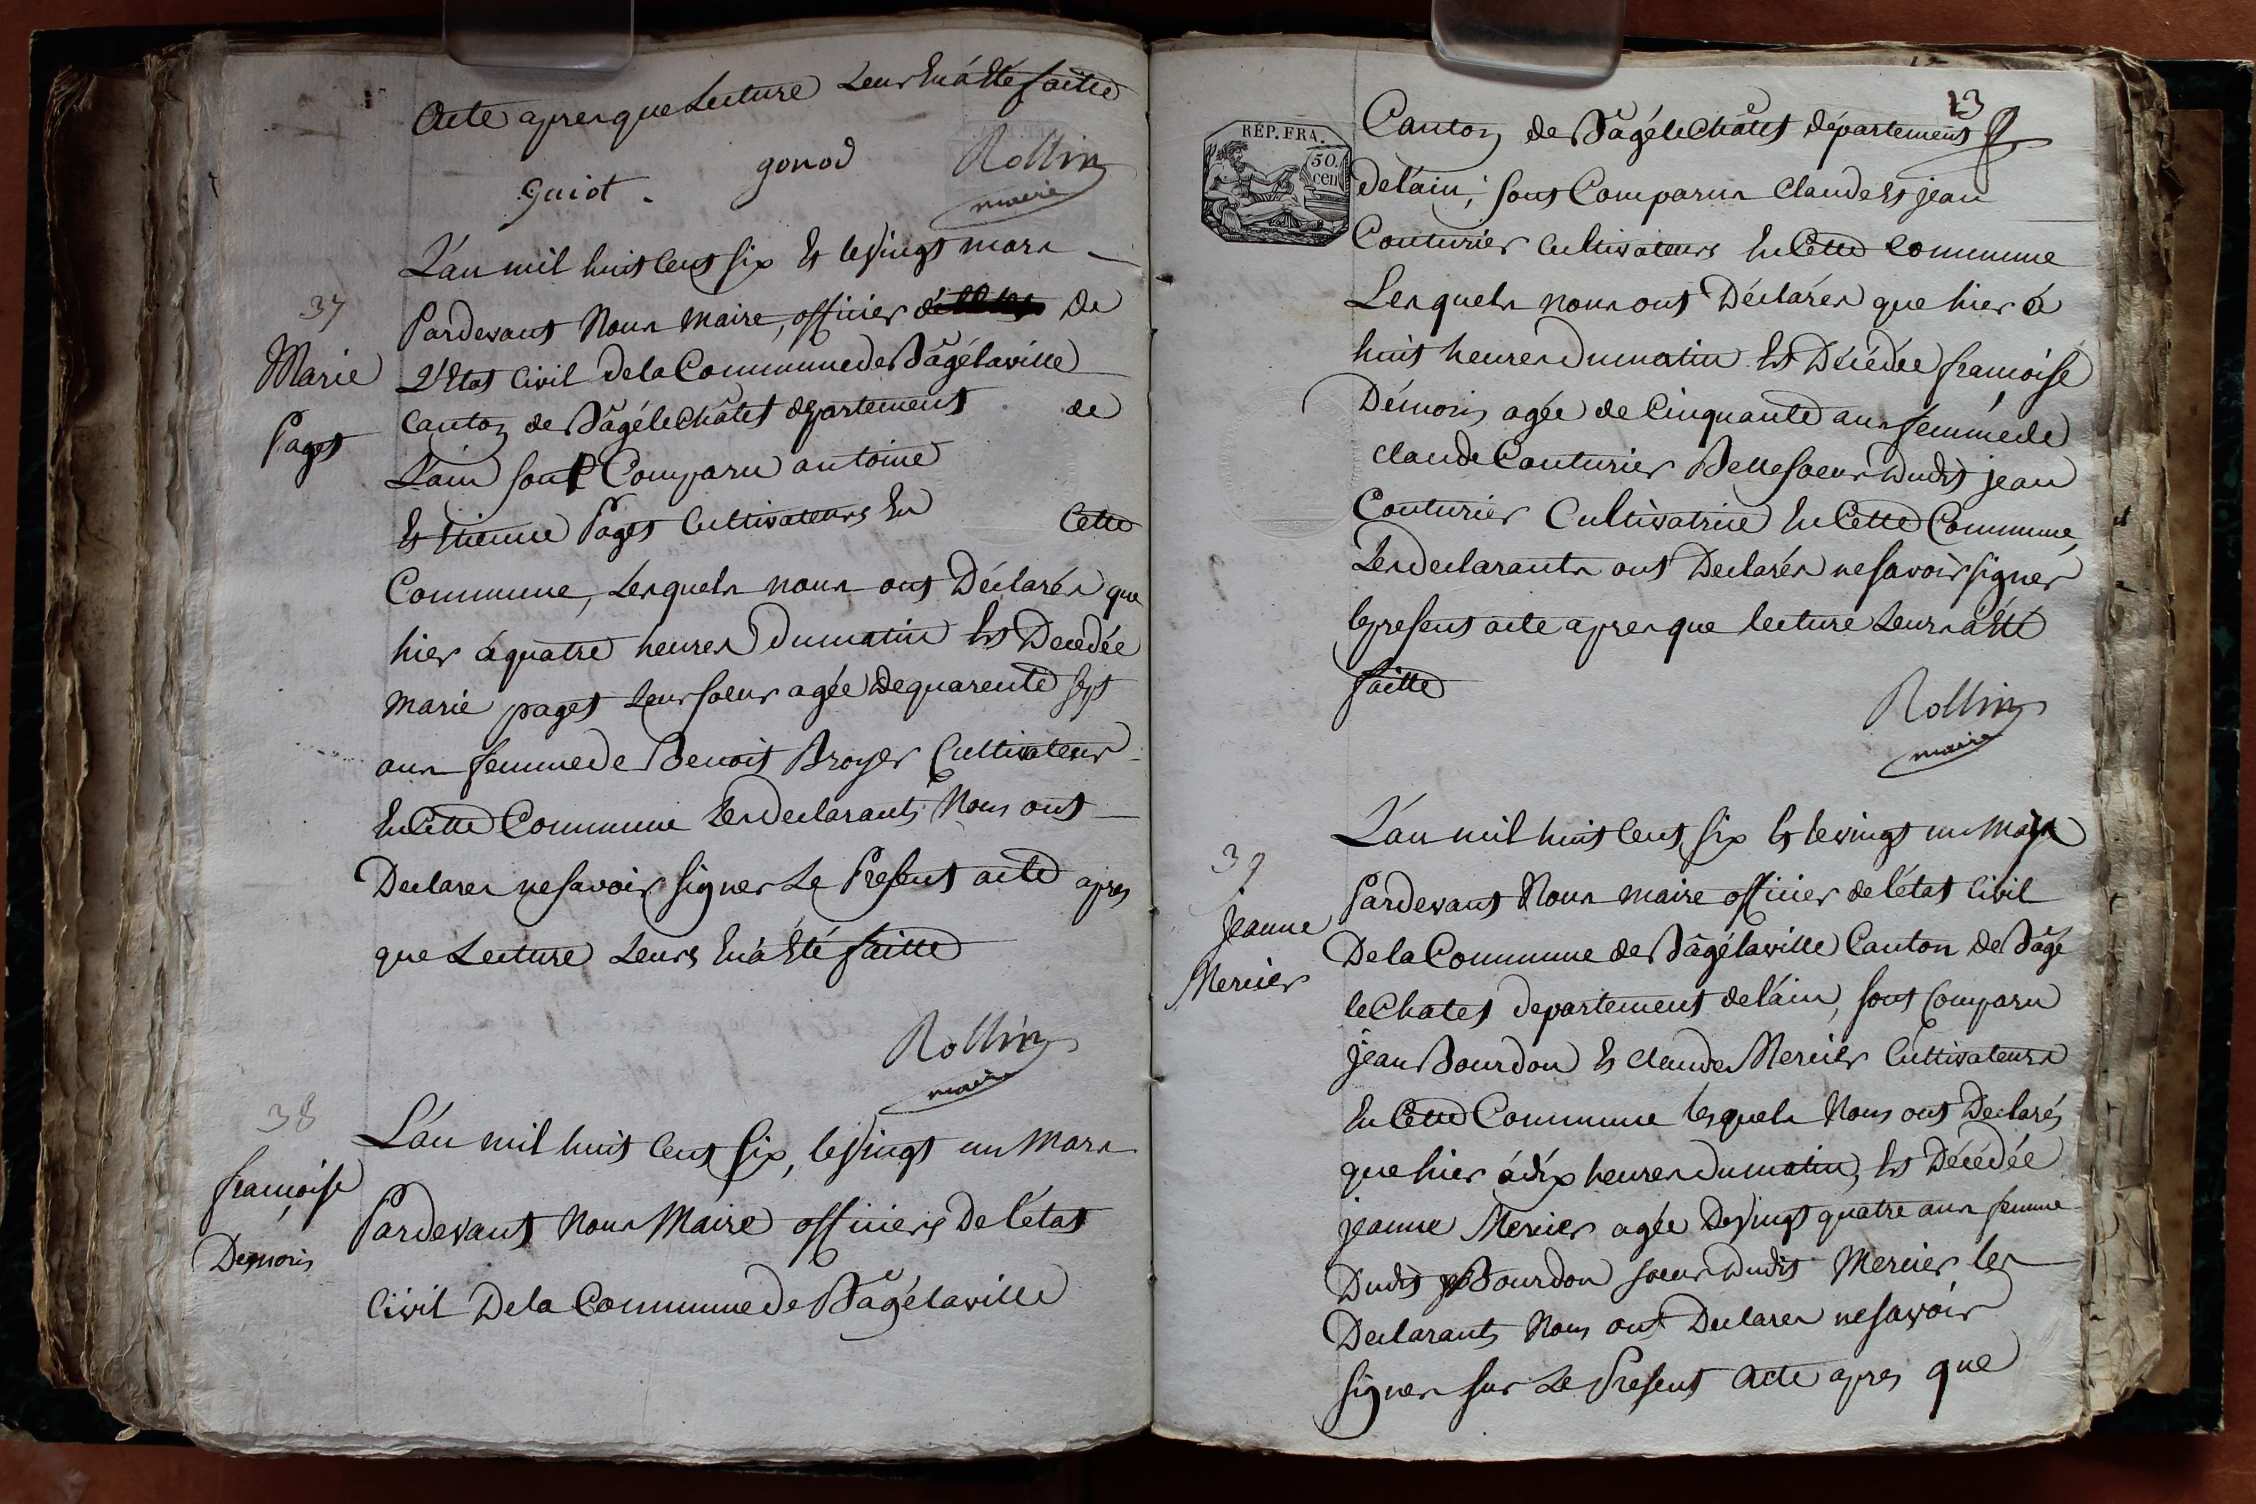 acte apres que Lecture Leur En á Eté faitte
Guiot.
gonod
Rollin
maire
L'an mil huit Cent Six Et le Vingt mars
37
Marie
Paget
Pardevant Nous Maire, officier de
L'Etat Civil de la Commune de Bâgé la ville
Canton de Bâgé le Châtel departement de
L'ain sont Comparu antoine
Et Etienne Paget Cultivateurs En Cette
Commune, Lesquels nous ont Déclarés que
hier à quatre heures du matin Est Decedée
marie paget Leur soeur agée de quarente sept
ans femme de Benoit Broyer Cultivateur
En Cette Commune Les declarants Nous ont
Declarer ne savoir signer Le Present acte apres
que Lecture Leurs En á Eté faitte
Rollin
maire
38
francoise
Demoris
L'an mil huit Cent Six, le Vingt un Mars
Pardevant Nous Maire officiers De l'état
Civil De la Commune de Bâgé la ville
23
RÉP. FRA.
50.
cen
Canton de Bâgé le Châtel département
de l'ain, sont Comparus Claude Et jean
Couturier Cultivateurs En Cette Commune
Lesquels nous ont Déclarés que hier á
huit heures du matin Est Décédée françoise
Démoris agée de Cinquante ans femme de
claude Couturier Belle soeur dudit jean
Couturier Cultivatrice En Cette Commune,
Les declarants ont Declarés ne savoir signer
le present acte apres que lecture Leurs á Eté
faitte
Rollin
maire
39
Jeanne
Mercier
L'an mil huit Cent Six Et le vingt un Mars
Pardevant Nous maire officier de l'état Civil
De la Commune de Bâgé la ville Canton de Bâgé
le Chatel departement de l'ain, sont Comparu
jean Bourdon Et claude Mercier Cultivateurs
En Cette Commune lesquels Nous ont Declarés
que hier á dix heures du matin, Est Décédée
jeanne Mercier agée De Vingt quatre ans femme
Dudit Bourdon soeur dudit Mercier les
Declarants Nous ont Declarer ne savoir
signer sur Le Present Acte apres que